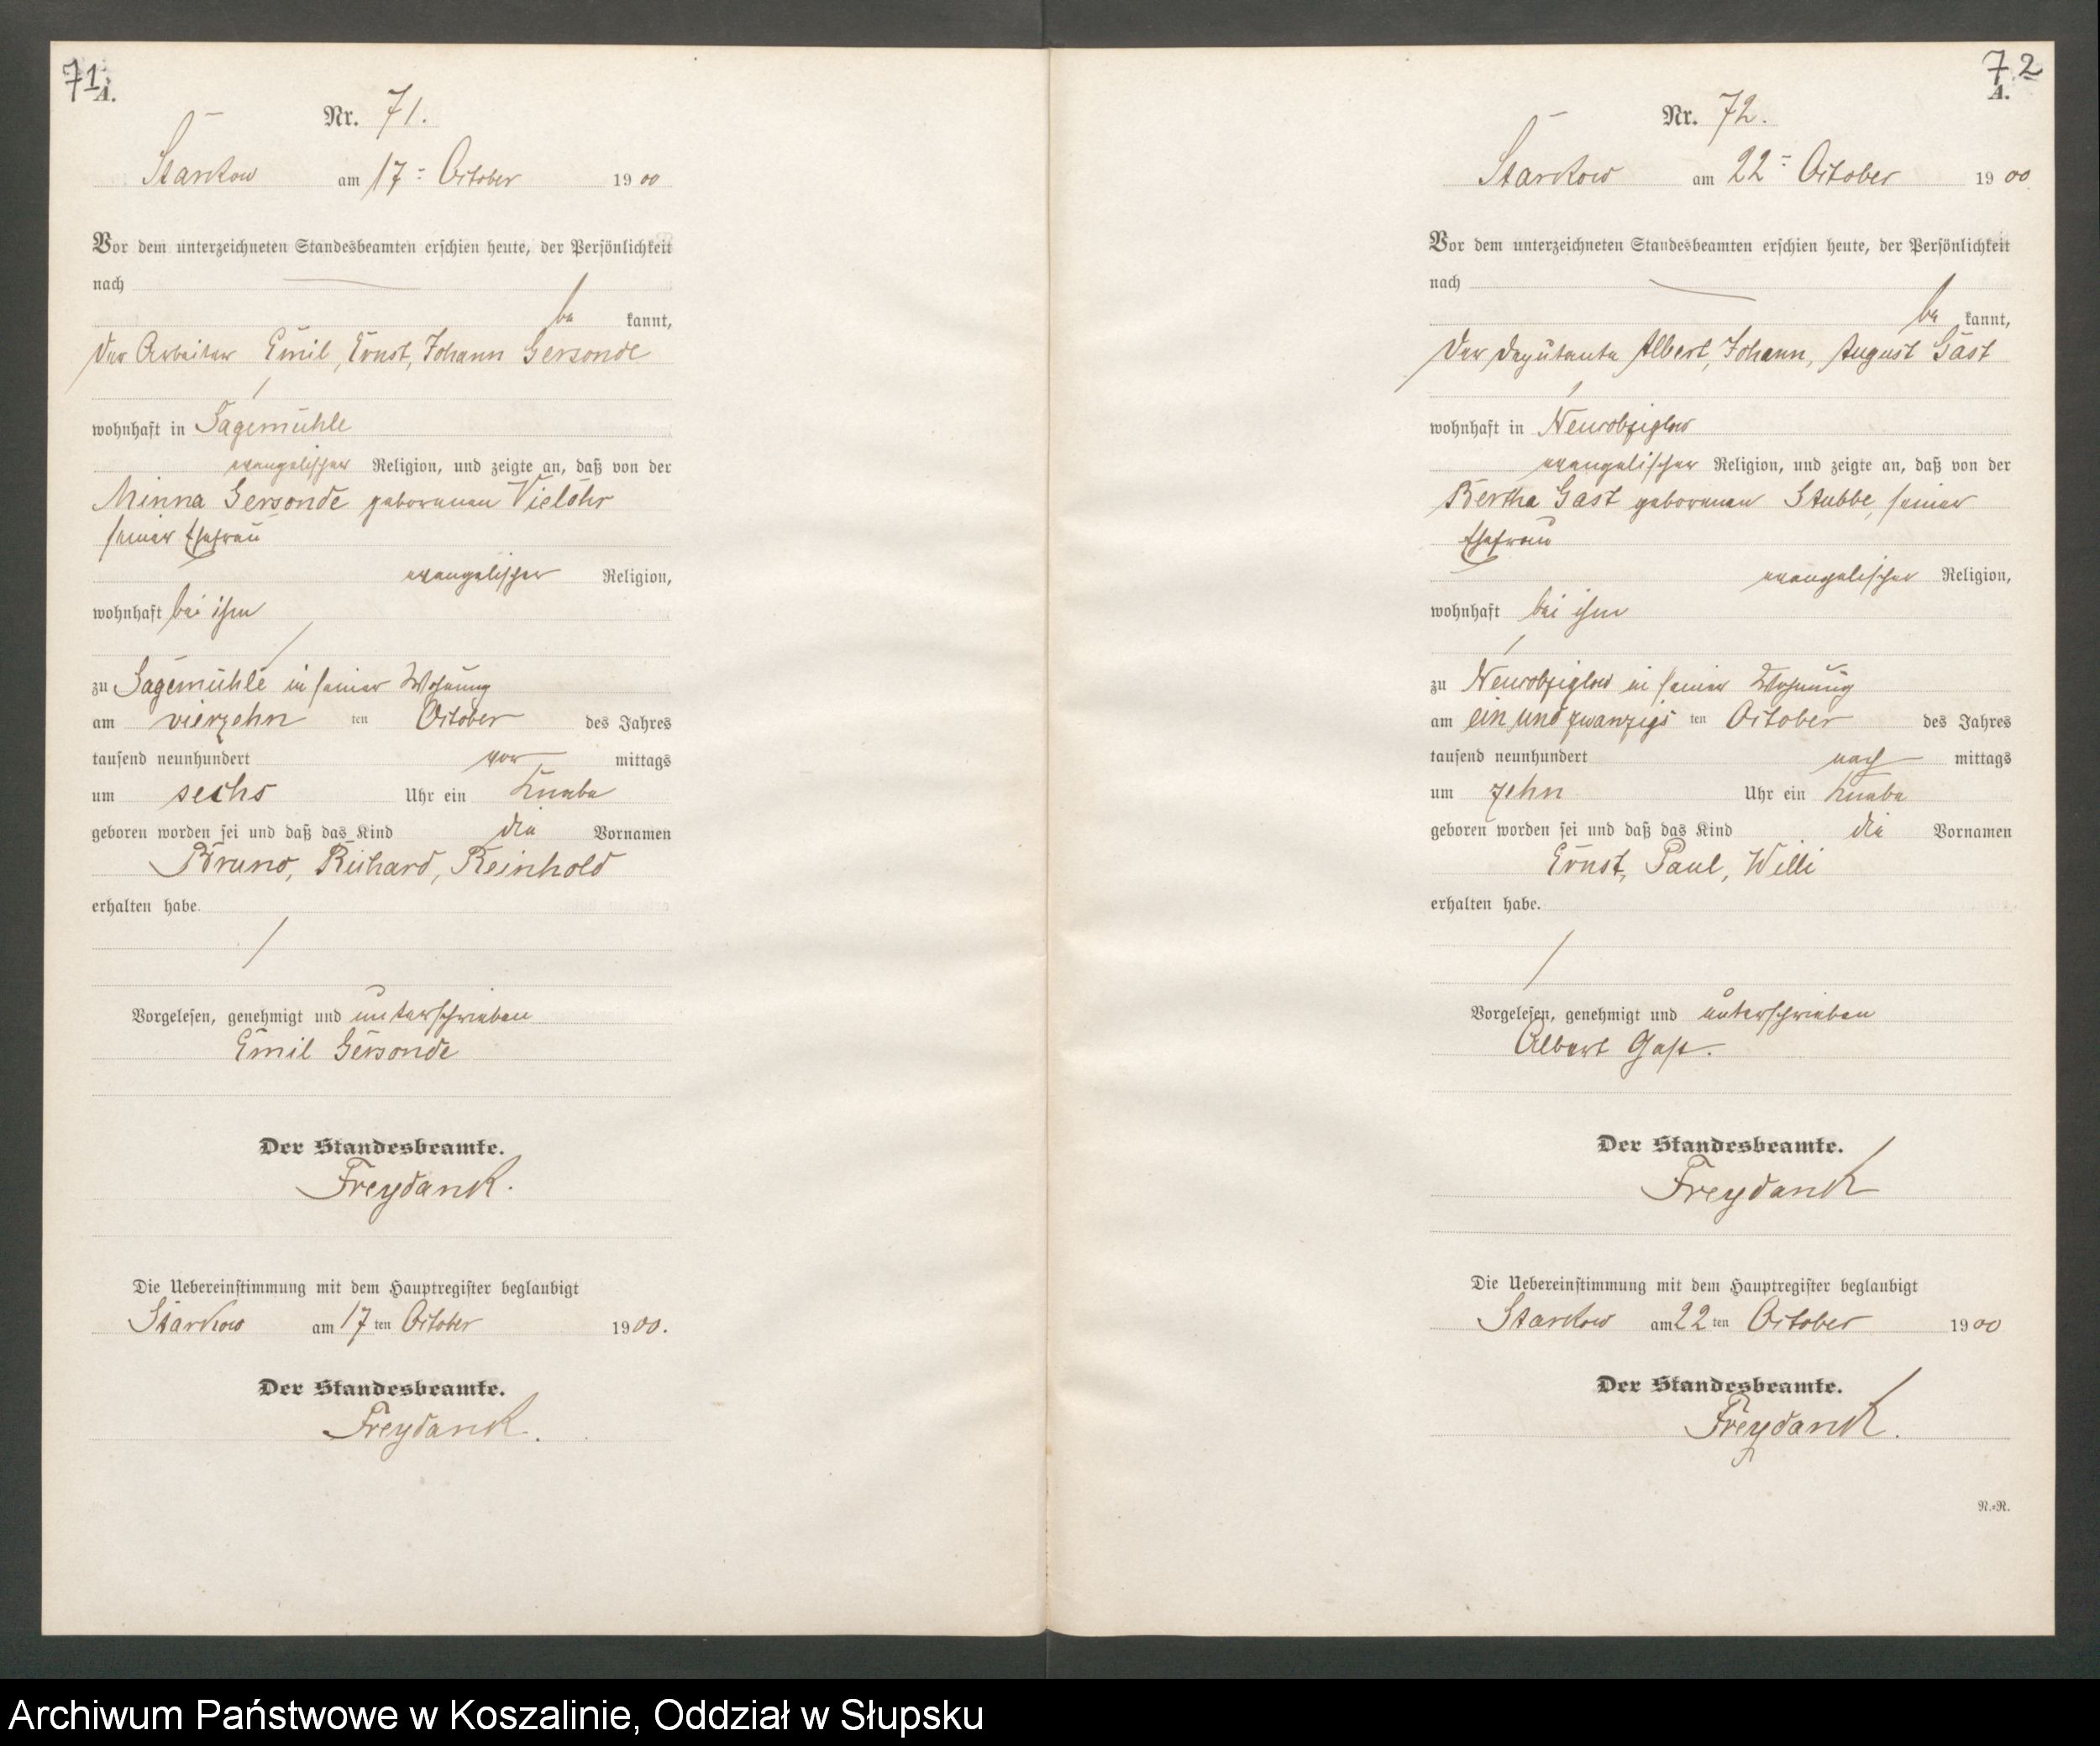 71
A.
Nr. 71.
Starkow am 17ten October 1900
Vor dem unterzeichneten Standesbeamten erschien heute, der Persönlichkeit
nach
be kannt,
der Arbeiter Emil, Ernst, Johann Gersonde
wohnhaft in Sägemühle
evangelischer Religion, und zeigte an, daß von der
Minna Gersonde geborenen Vielöhr
seiner Ehefrau
evangelischer Religion,
wohnhaft bei ihm
zu Sägemühle in seiner Wohnung
am vierzehn ten October des Jahres
tausend neunhundert vor mittags
um sechs Uhr ein Knabe
geboren worden sei und daß das Kind die Vornamen
Bruno, Richard, Reinhold
erhalten habe.
Vorgelesen, genehmigt und unterschrieben
Emil Gersonde
Der Standesbeamte.
Freydank.
Die Uebereinstimmung mit dem Hauptregister beglaubigt
Starkow am 17 ten October 1900.
Der Standesbeamte.
Freydank.
72
A.
Nr. 72.
Starkow am 22ten October 1900
Vor dem unterzeichneten Standesbeamten erschien heute, der Persönlichkeit
nach
be kannt,
der Deputante Albert, Johann, August Gast
wohnhaft in Neuwobziglow
evangelischer Religion, und zeigte an, daß von der
Bertha Gast geborenen Stubbe, seiner
Ehefrau
evangelischer Religion,
wohnhaft bei ihm
zu Neuwobziglow in seiner Wohnung
am ein und zwanzigs ten October des Jahres
tausend neunhundert nach mittags
um zehn Uhr ein Knabe
geboren worden sei und daß das Kind die Vornamen
Ernst, Paul, Willi
erhalten habe.
Vorgelesen, genehmigt und unterschrieben
Albert Gast.
Der Standesbeamte.
Freydank
Die Uebereinstimmung mit dem Hauptregister beglaubigt
Starkow am 22 ten October 1900
Der Standesbeamte.
Freydank.
N.=R.
Archiwum Państwowe w Koszalinie, Oddział w Słupsku